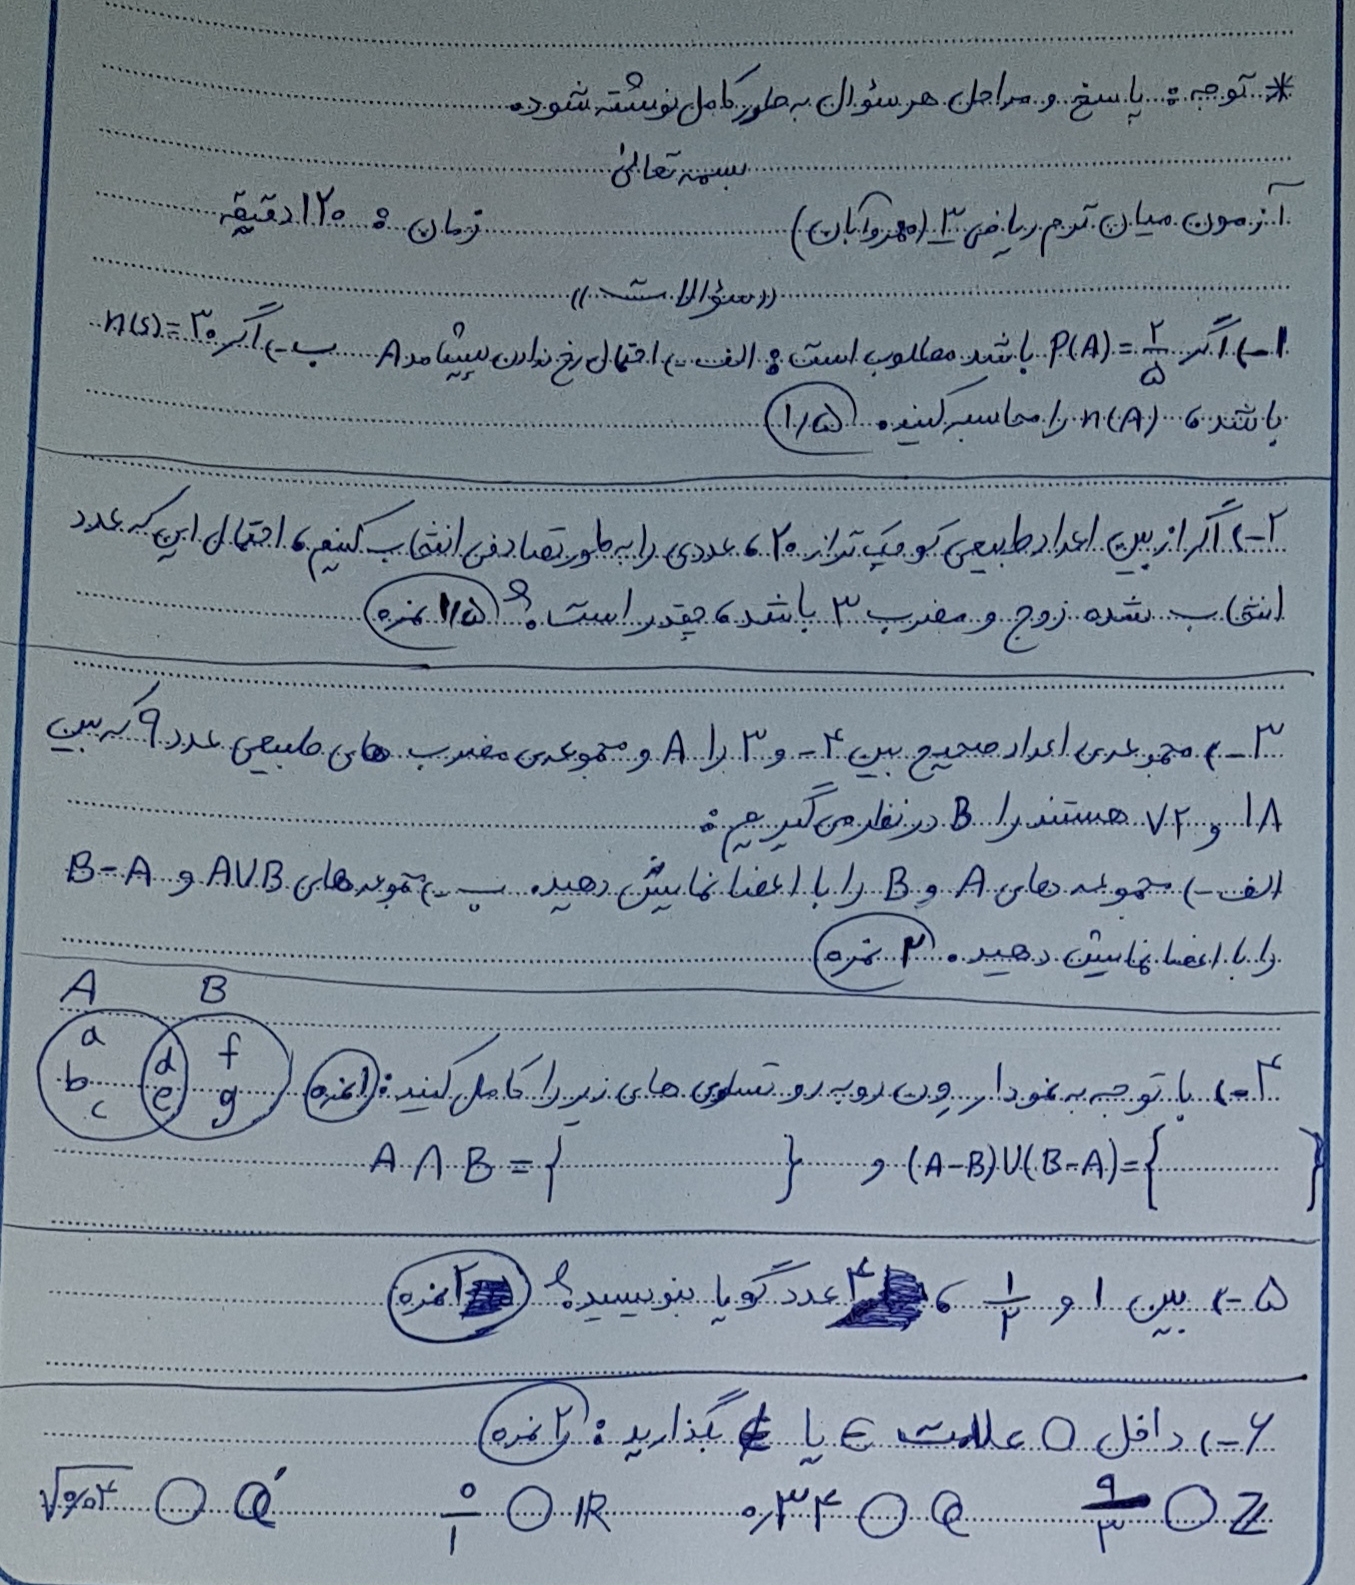 * توجه: پاسخ و مراحل هر سؤال به طور کامل نوشته شود.
بسمه تعالی
آزمون میان ترم ریاضی ۳ (مهر و آبان) زمان: ۱۲۰ دقیقه
((سؤالات))
۱-) اگر P(A) = ۲/۵ باشد مطلوب است: الف-) احتمال رخ ندادن پیشامد A ب-) اگر n(s) = ۳۰
باشد، n(A) را محاسبه کنید. ۱/۵
۲-) اگر از بین اعداد طبیعی کوچک تر از ۲۰، عددی را به طور تصادفی انتخاب کنیم، احتمال این که عدد
انتخاب شده زوج و مضرب ۳ باشد، چقدر است؟ ۱/۵ نمره
۳-) مجموعه‌ی اعداد صحیح بین ۴- و ۳ را A و مجموعه‌ی مضرب های طبیعی عدد ۹ که بین
۱۸ و ۷۲ هستند را B در نظر می گیریم:
الف-) مجموعه های A و B را با اعضا نمایش دهید. ب-) مجموعه های A∪B و B-A
را با اعضا نمایش دهید. ۲ نمره
A B
a b c d e f g
۴-) با توجه به نمودار ون روبه رو تساوی های زیر را کامل کنید: ۱ نمره
A ∩ B = { } و (A-B)∪(B-A) = { }
۵-) بین ۱ و ۱/۲، ۴ عدد گویا بنویسید؟ ۲ نمره
۶-) داخل ○ علامت ∈ یا ∉ بگذارید: ۲ نمره
√۰/۰۴ ○ Q′ ۰/۱ ○ IR ۰/۳۴ ○ Q ۹/۳ ○ Z